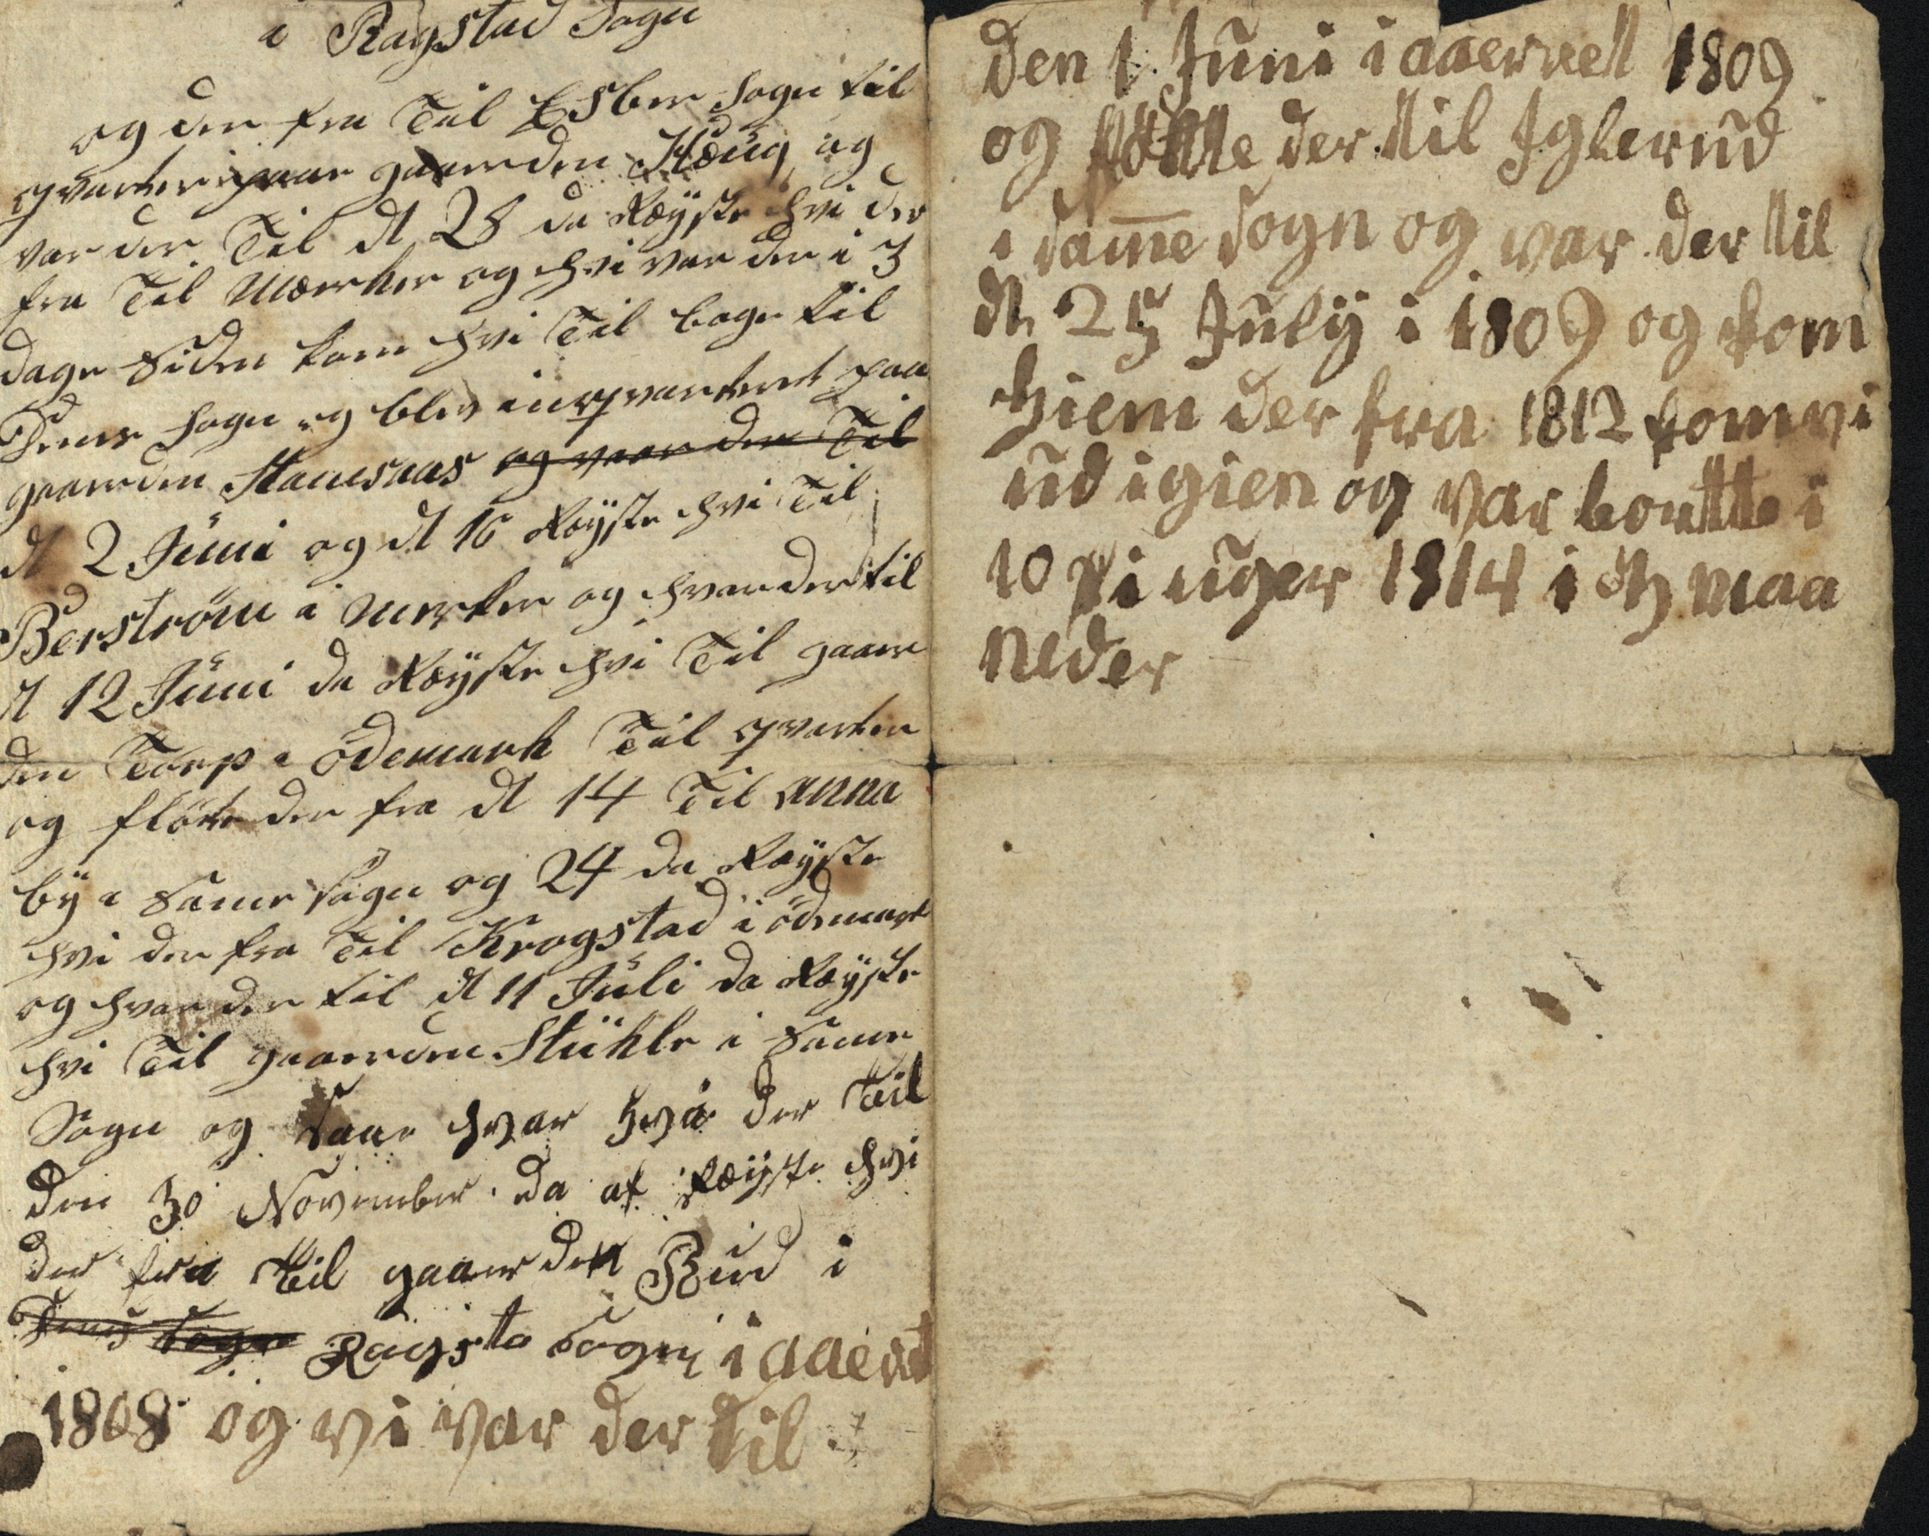 i Ragstad Sogn
og der fra Til Esber sogn til
qvarter paa gaarden Hæug og
var der Til dt 28 da Ræyste hvi der
fra Til Mærker og hvi var der i 3
dage Siden kom hvi Til bage til
Denne sogn og blev inqvartert paa
gaarden Stamsaas og vaar der Til
dt 2 Juni og dt 16 Ræyste hvi Til
Berström i Merker og hvar der til
dt 12 Juni da Ræyste hvi Til gaar
den Torp i ödemark Til qvarter
og flötte der fra dt 14 Til Anna
bÿ i Same Sogn og 24 da Ræyste
hvi der fra Til Krogstad i ödemark
og hvar der til dt 11 Juli da Ræyste
hvi Til gaarden Stühle i Same
Sogn og Saa hvar hvi der Til
den 30 November da af Ræyste hvi
der fra til gaarden Rud i
Denne Sogn Ragsta Sogn i aaeret
1808 og vi var der til
den 1 Juni i aaerret 1809
og flötte der til Iglerud
i sam̅e Sogn og var der til
dt 25 Julÿ i 1809 og kom
hiem der fra 1812 kom vi
ud igien og var bortte i
10 uger 1814 i maa
neder